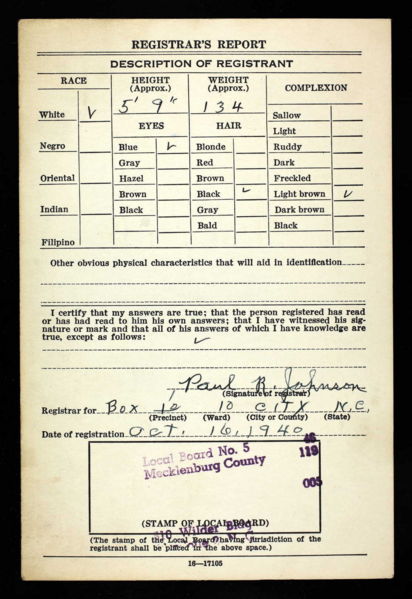 REGISTRAR'S REPORT
DESCRIPTION OF REGISTRANT
RACE HEIGHT (Approx.) WEIGHT (Approx.) COMPLEXION
5' 9" 134
White ✓ Sallow
EYES HAIR Light
Negro Blue ✓ Blonde Ruddy
Gray Red Dark
Oriental Hazel Brown Freckled
Brown Black ✓ Light brown ✓
Indian Black Gray Dark brown
Bald Black
Filipino
Other obvious physical characteristics that will aid in identification
I certify that my answers are true; that the person registered has read
or has had read to him his own answers; that I have witnessed his sig-
nature or mark and that all of his answers of which I have knowledge are
true, except as follows:
✓
Paul R. Johnson
(Signature of registrar)
Registrar for Box 10 CITY N.C.
(Precinct) (Ward) (City or County) (State)
Date of registration Oct. 16, 1940
46
119
005
Local Board No. 5
Mecklenburg County
Wilder Bldg
(STAMP OF LOCAL BOARD)
(The stamp of the Local Board having jurisdiction of the
registrant shall be placed in the above space.)
16—17105